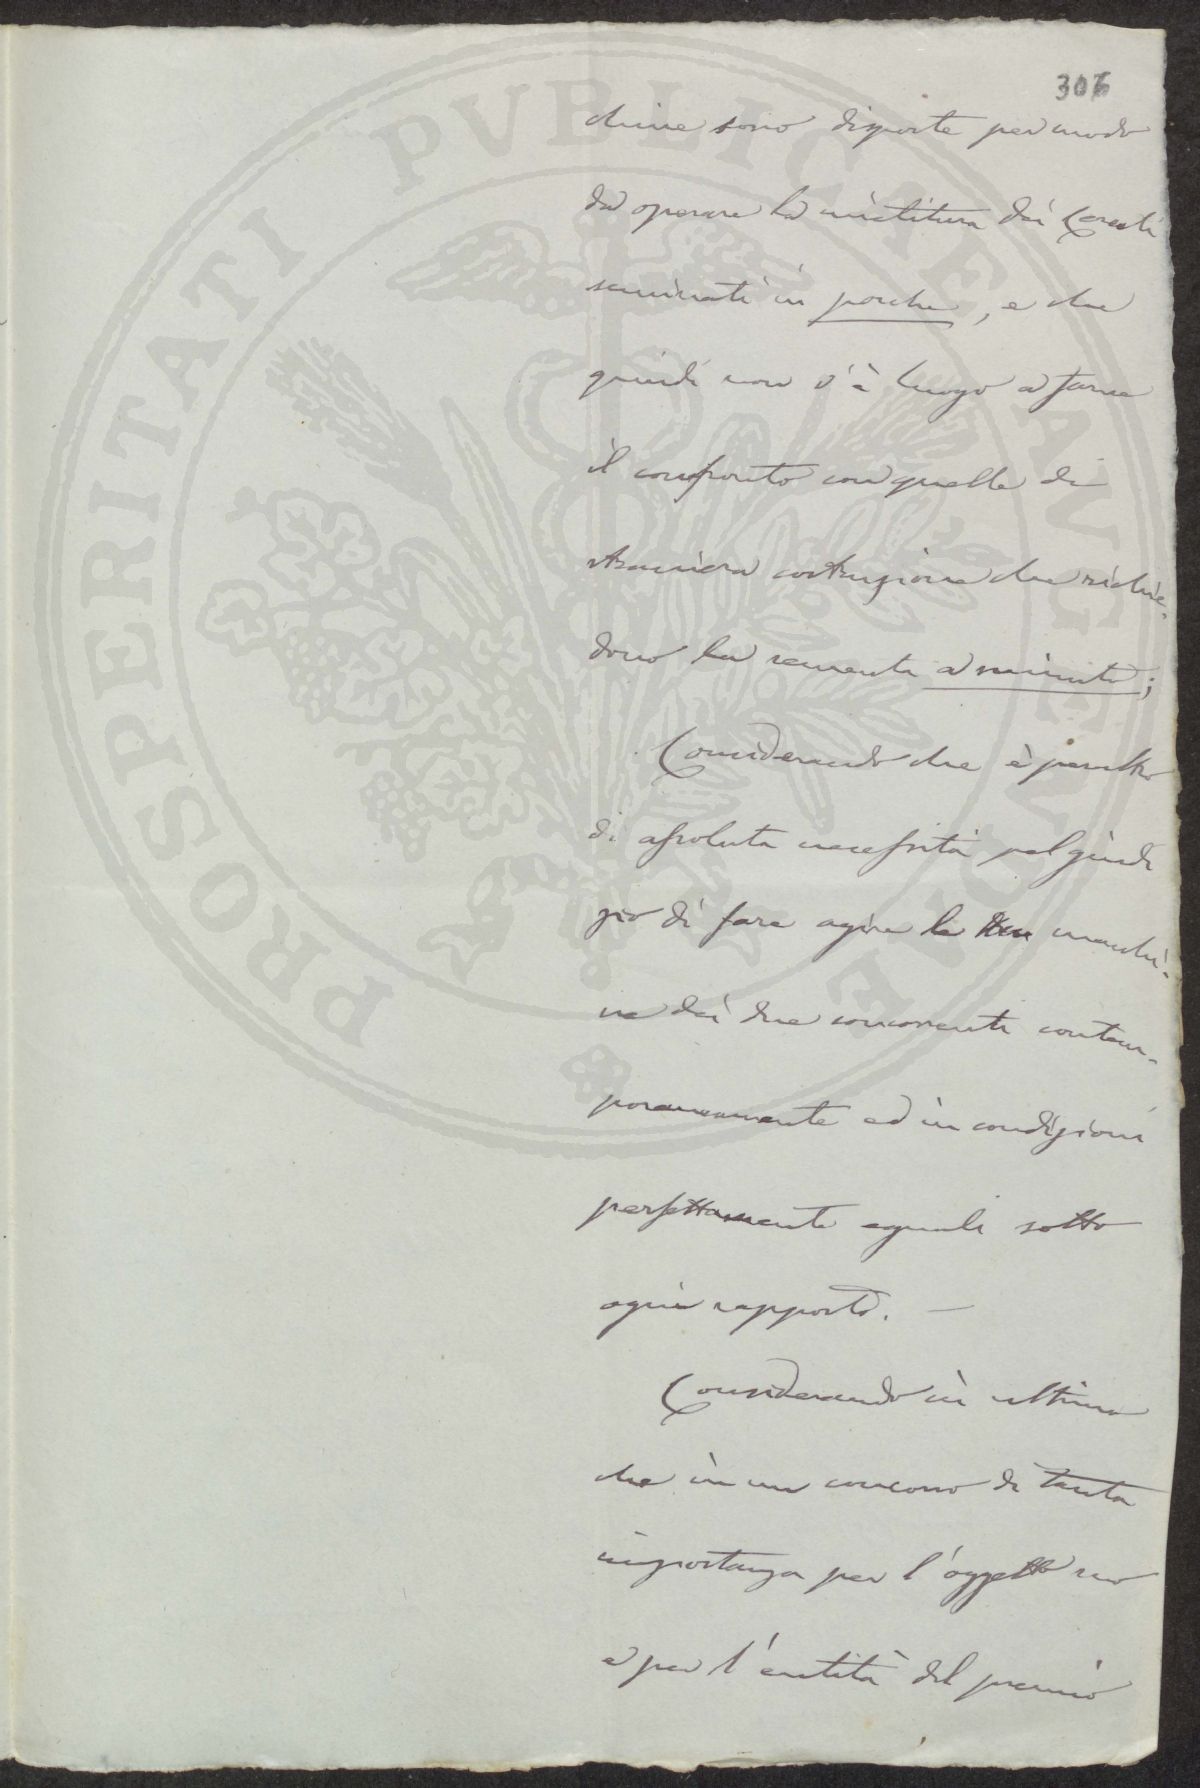 306
chine sono disposte per modo
da operare la mietitura dei Cereali
seminati in porche, e che
quindi non v'è luogo a farne
il confronto con quelle di
straniera costruzione che richie-
dono la sementa a minuto;
Considerando che è peraltro
di assoluta necessità pel giudi
zio di fare agire le machi-
ne dei due concorrenti contem-
poraneamente ed in condizioni
perfettamente eguali sotto
ogni rapporto. —
Considerando in ultimo
che in un concorso di tanta
importanza per l'oggetto suo
e per l'entità del premio
PROSPERITATI PVBLICAE AVGENDAE